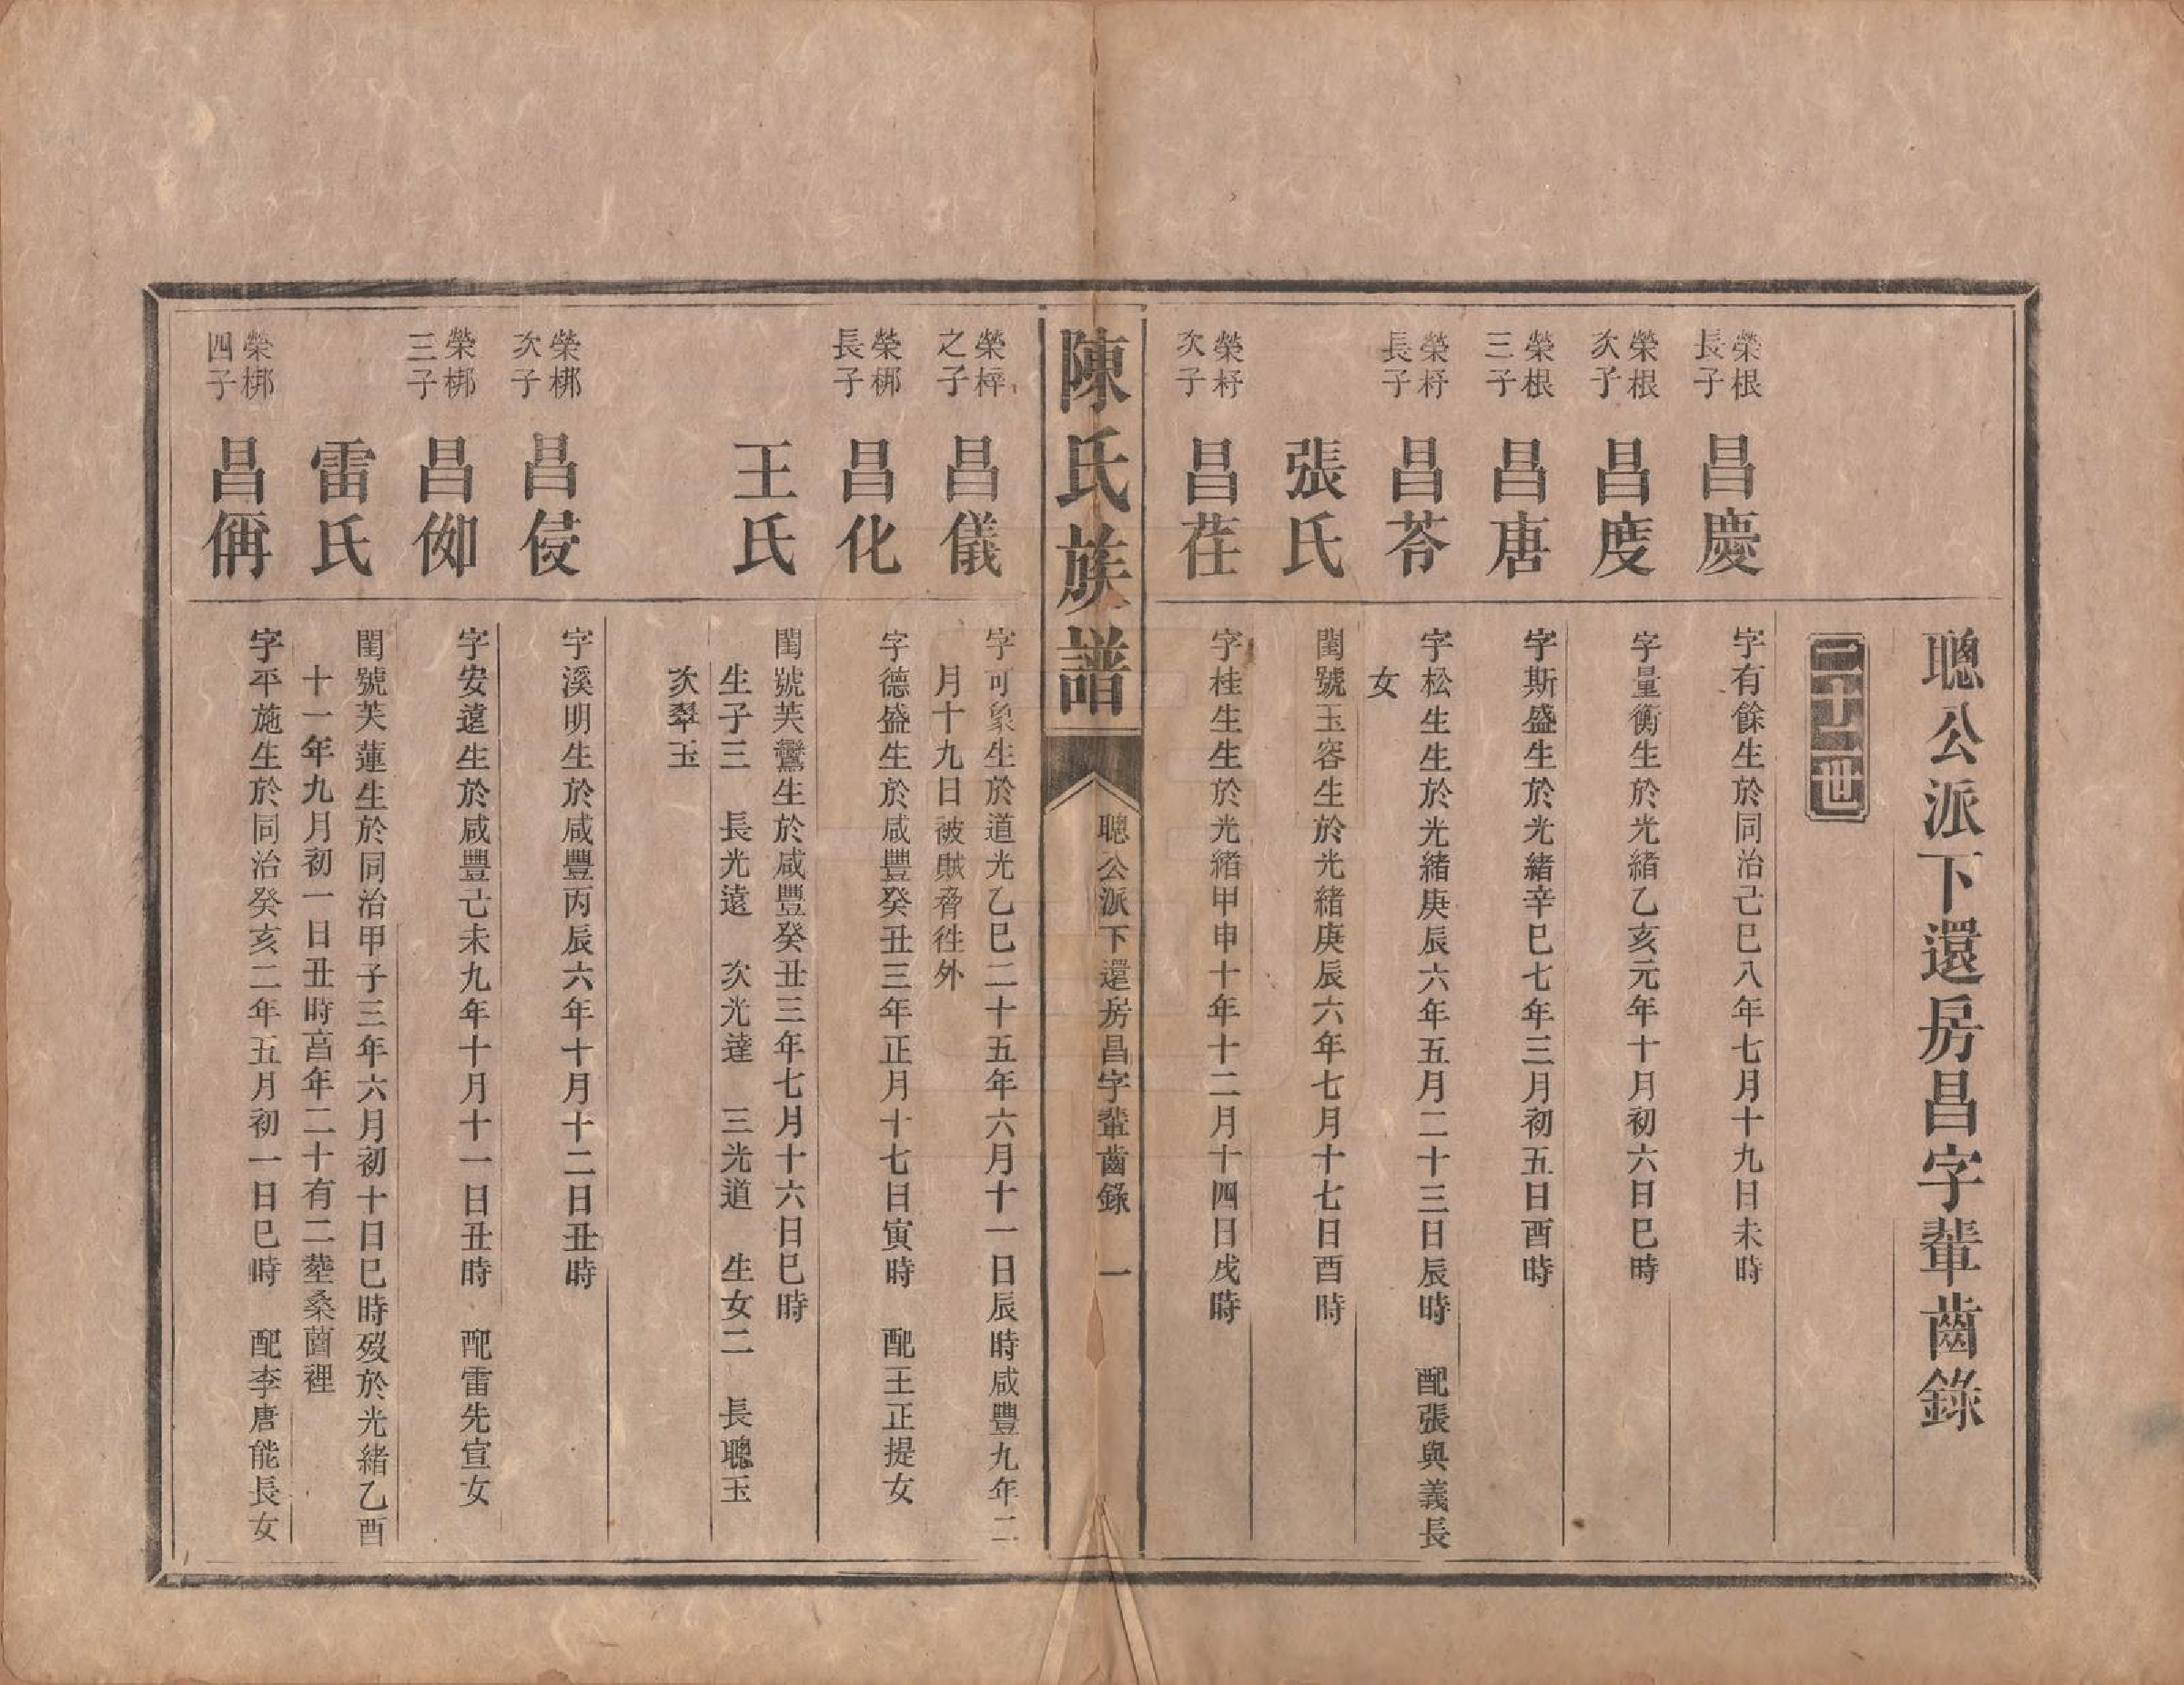 聰公派下還房昌字輩齒錄
二十二世
榮根長子
昌慶
字有餘生於同治己巳八年七月十九日未時
榮根次子
昌度
字量衡生於光緒乙亥元年十月初六日巳時
榮根三子
昌唐
字斯盛生於光緒辛巳七年三月初五日酉時
榮杍長子
昌荅
字松生生於光緒庚辰六年五月二十三日辰時 配張與義長
女
張氏
閨號玉容生於光緒庚辰六年七月十七日酉時
榮杍次子
昌茬
字桂生生於光緒甲申十年十二月十四日戌時
陳氏族譜
聰公派下還房昌字輩齒錄 一
榮梓之子
昌儀
字可象生於道光乙巳二十五年六月十一日辰時咸豐九年二
月十九日被賊脅徃外
榮梆長子
昌化
字德盛生於咸豐癸丑三年正月十七日寅時 配王正提女
王氏
閨號芙鸞生於咸豐癸丑三年七月十六日巳時
生子三 長光遠 次光達 三光道 生女二 長聰玉
次翠玉
榮梆次子
昌侵
字溪明生於咸豐丙辰六年十月十二日丑時
榮梆三子
昌
字安遠生於咸豐己未九年十月十一日丑時 配雷先宣女
雷氏
閨號芙蓮生於同治甲子三年六月初十日巳時歿於光緒乙酉
十一年九月初一日丑時亯年二十有二塟桑薗裡
榮梆四子
昌偁
字平施生於同治癸亥二年五月初一日巳時 配李唐能長女